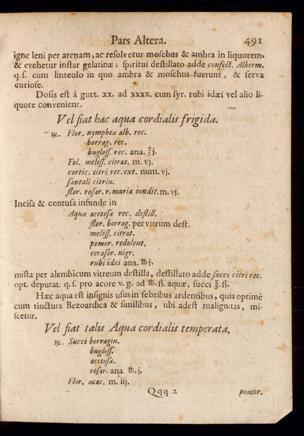 Pars Altera. 491
igne leni per arenam, ac resolvetur moschus & ambra in liquorem,
& evehetur instar gelatinæ; spiritui destillato adde confect. Alkerm.
q.s. cum linteolo in quo ambra & moschus fuerunt, & serva
curiose.
Dosis est â gutt. xx. ad xxxx. cum syr. rubi idæi vel alio li-
quore convenient.
Vel fiat hac aqua cordialis frigida.
℞. Flor. nympheæ alb. rec.
borrag. rec.
bugloss. rec. ana. ℥j.
Fol. meliss. citrat. m. vj.
cortic. citri rec. ext. num. vj.
santali citrin.
flor. rosar. r. muria condit. m. vj.
Incisa & contusa infunde in
Aquæ acetosæ rec. destill.
flor. borrag. per vitrum dest.
meliss. citrat.
pomor. redolent.
cerasor. nigr.
rubi idæi ana. ℔j.
mista per alembicum vitreum destilla, destillato adde succi citri rec.
opt. depurat. q.s. pro acore v. g. ad ℔. ß. aquæ, succi ℥. ß.
Hæc aqua est insignis usus in febribus ardentibus, quia optimè
cum tinctura Bezoardica & similibus, ubi adest malignitas, mi-
scetur.
Vel fiat talis Aqua cordialis temperata.
℞. Succi borragin.
bugloss.
acetosæ.
rosar. ana. ℔. j.
Flor. acac. m. iij.
Qqq 2 pomor.